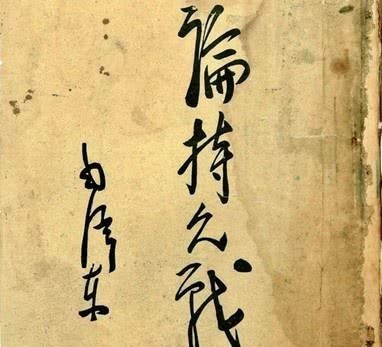 論持久戰
毛澤東